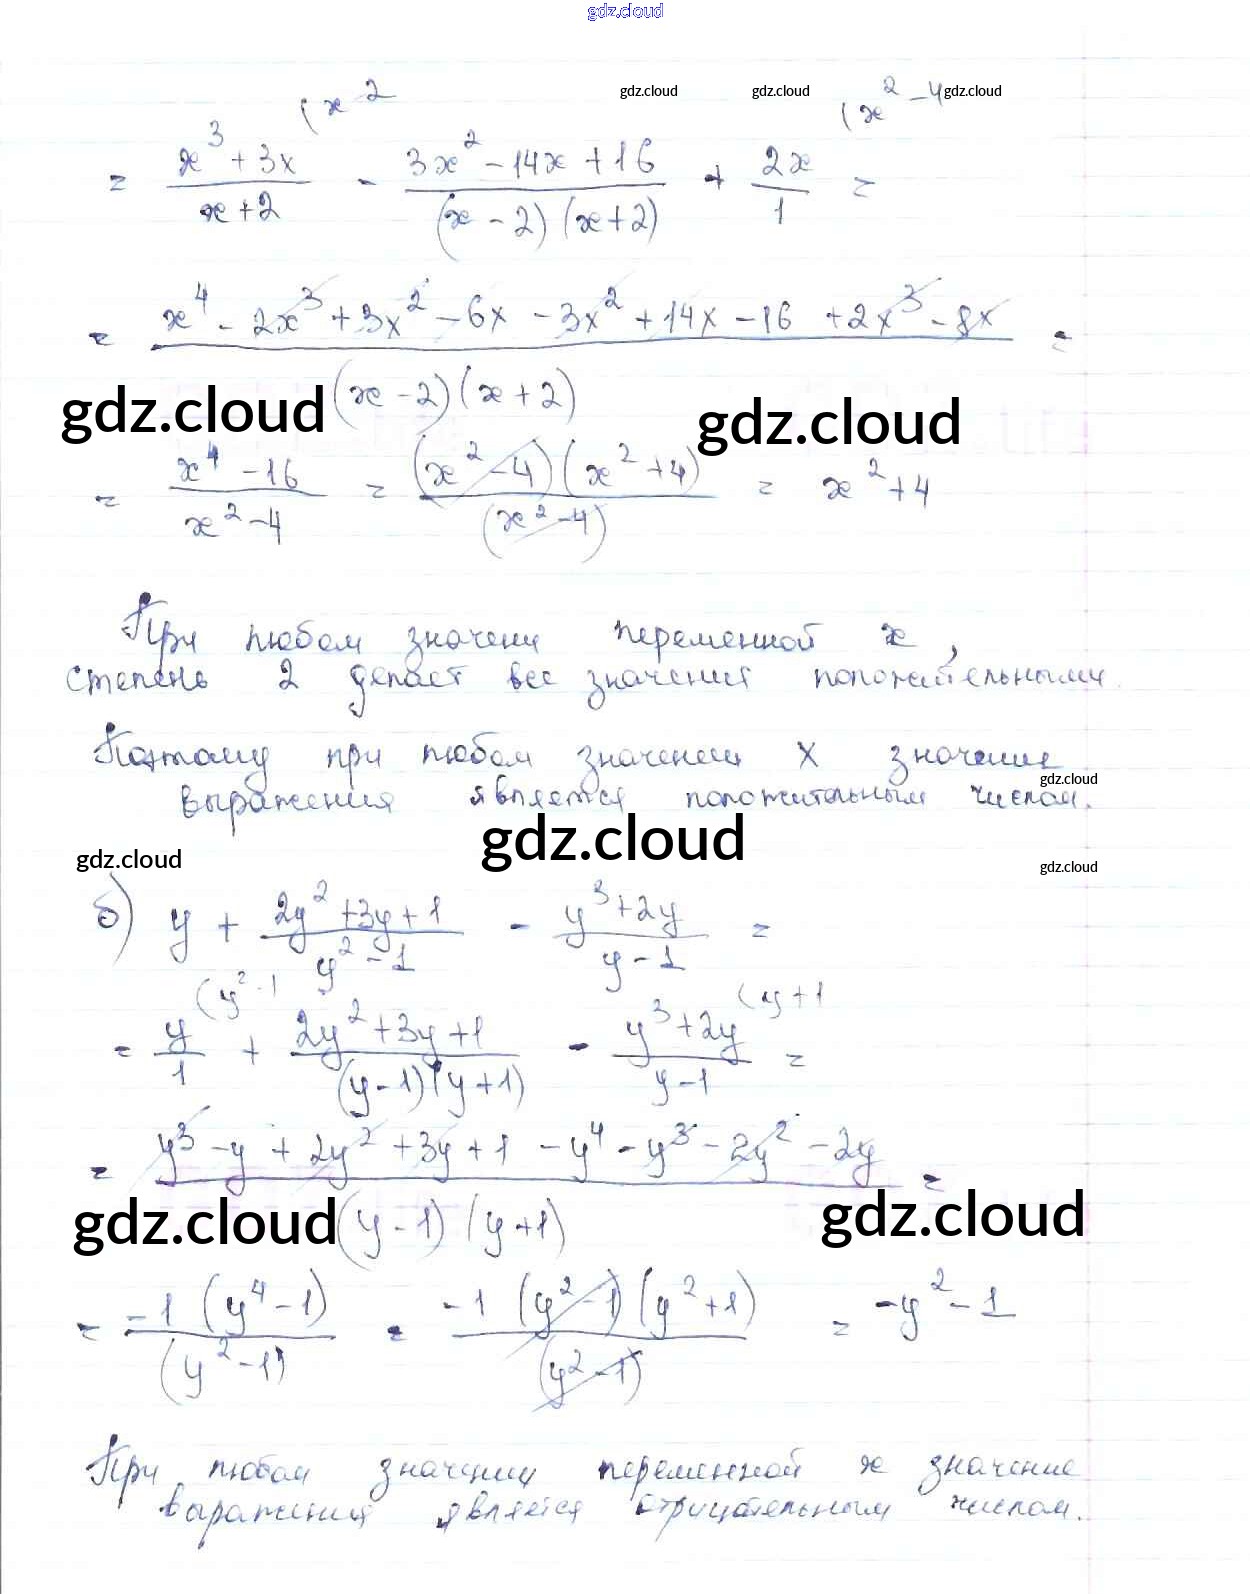 gdz.cloud
gdz.cloud gdz.cloud gdz.cloud
= (x³+3x)/(x+2) (x-2 - (3x²-14x+16)/((x-2)(x+2)) + 2x/1 (x²-4 =
= (x⁴-2x³+3x²-6x-3x²+14x-16+2x³-8x)/((x-2)(x+2)) =
gdz.cloud gdz.cloud
= (x⁴-16)/(x²-4) = ((x²-4)(x²+4))/(x²-4) = x²+4
При любом значени переменной x,
степень 2 делает все значения положительными.
Поэтому при любом значении x значение
gdz.cloud
выражения является положительным числом.
gdz.cloud
gdz.cloud gdz.cloud
б) y + (2y²+3y+1)/(y²-1) - (y³+2y)/(y-1) =
= y/1 (y²-1 + (2y²+3y+1)/((y-1)(y+1)) - (y³+2y)/(y-1) (y+1 =
= (y³-y+2y²+3y+1-y⁴-y³-2y²-2y)/((y-1)(y+1)) =
gdz.cloud gdz.cloud
= (-1(y⁴-1))/(y²-1) = (-1(y²-1)(y²+1))/(y²-1) = -y²-1
При любом значении переменной x значение
выражения является отрицательным числом.